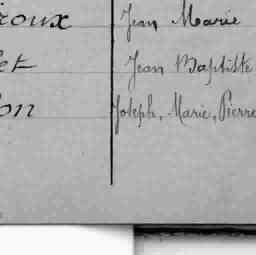 roux Jean Marie
et Jean Baptiste
on Joseph, Marie, Pierre